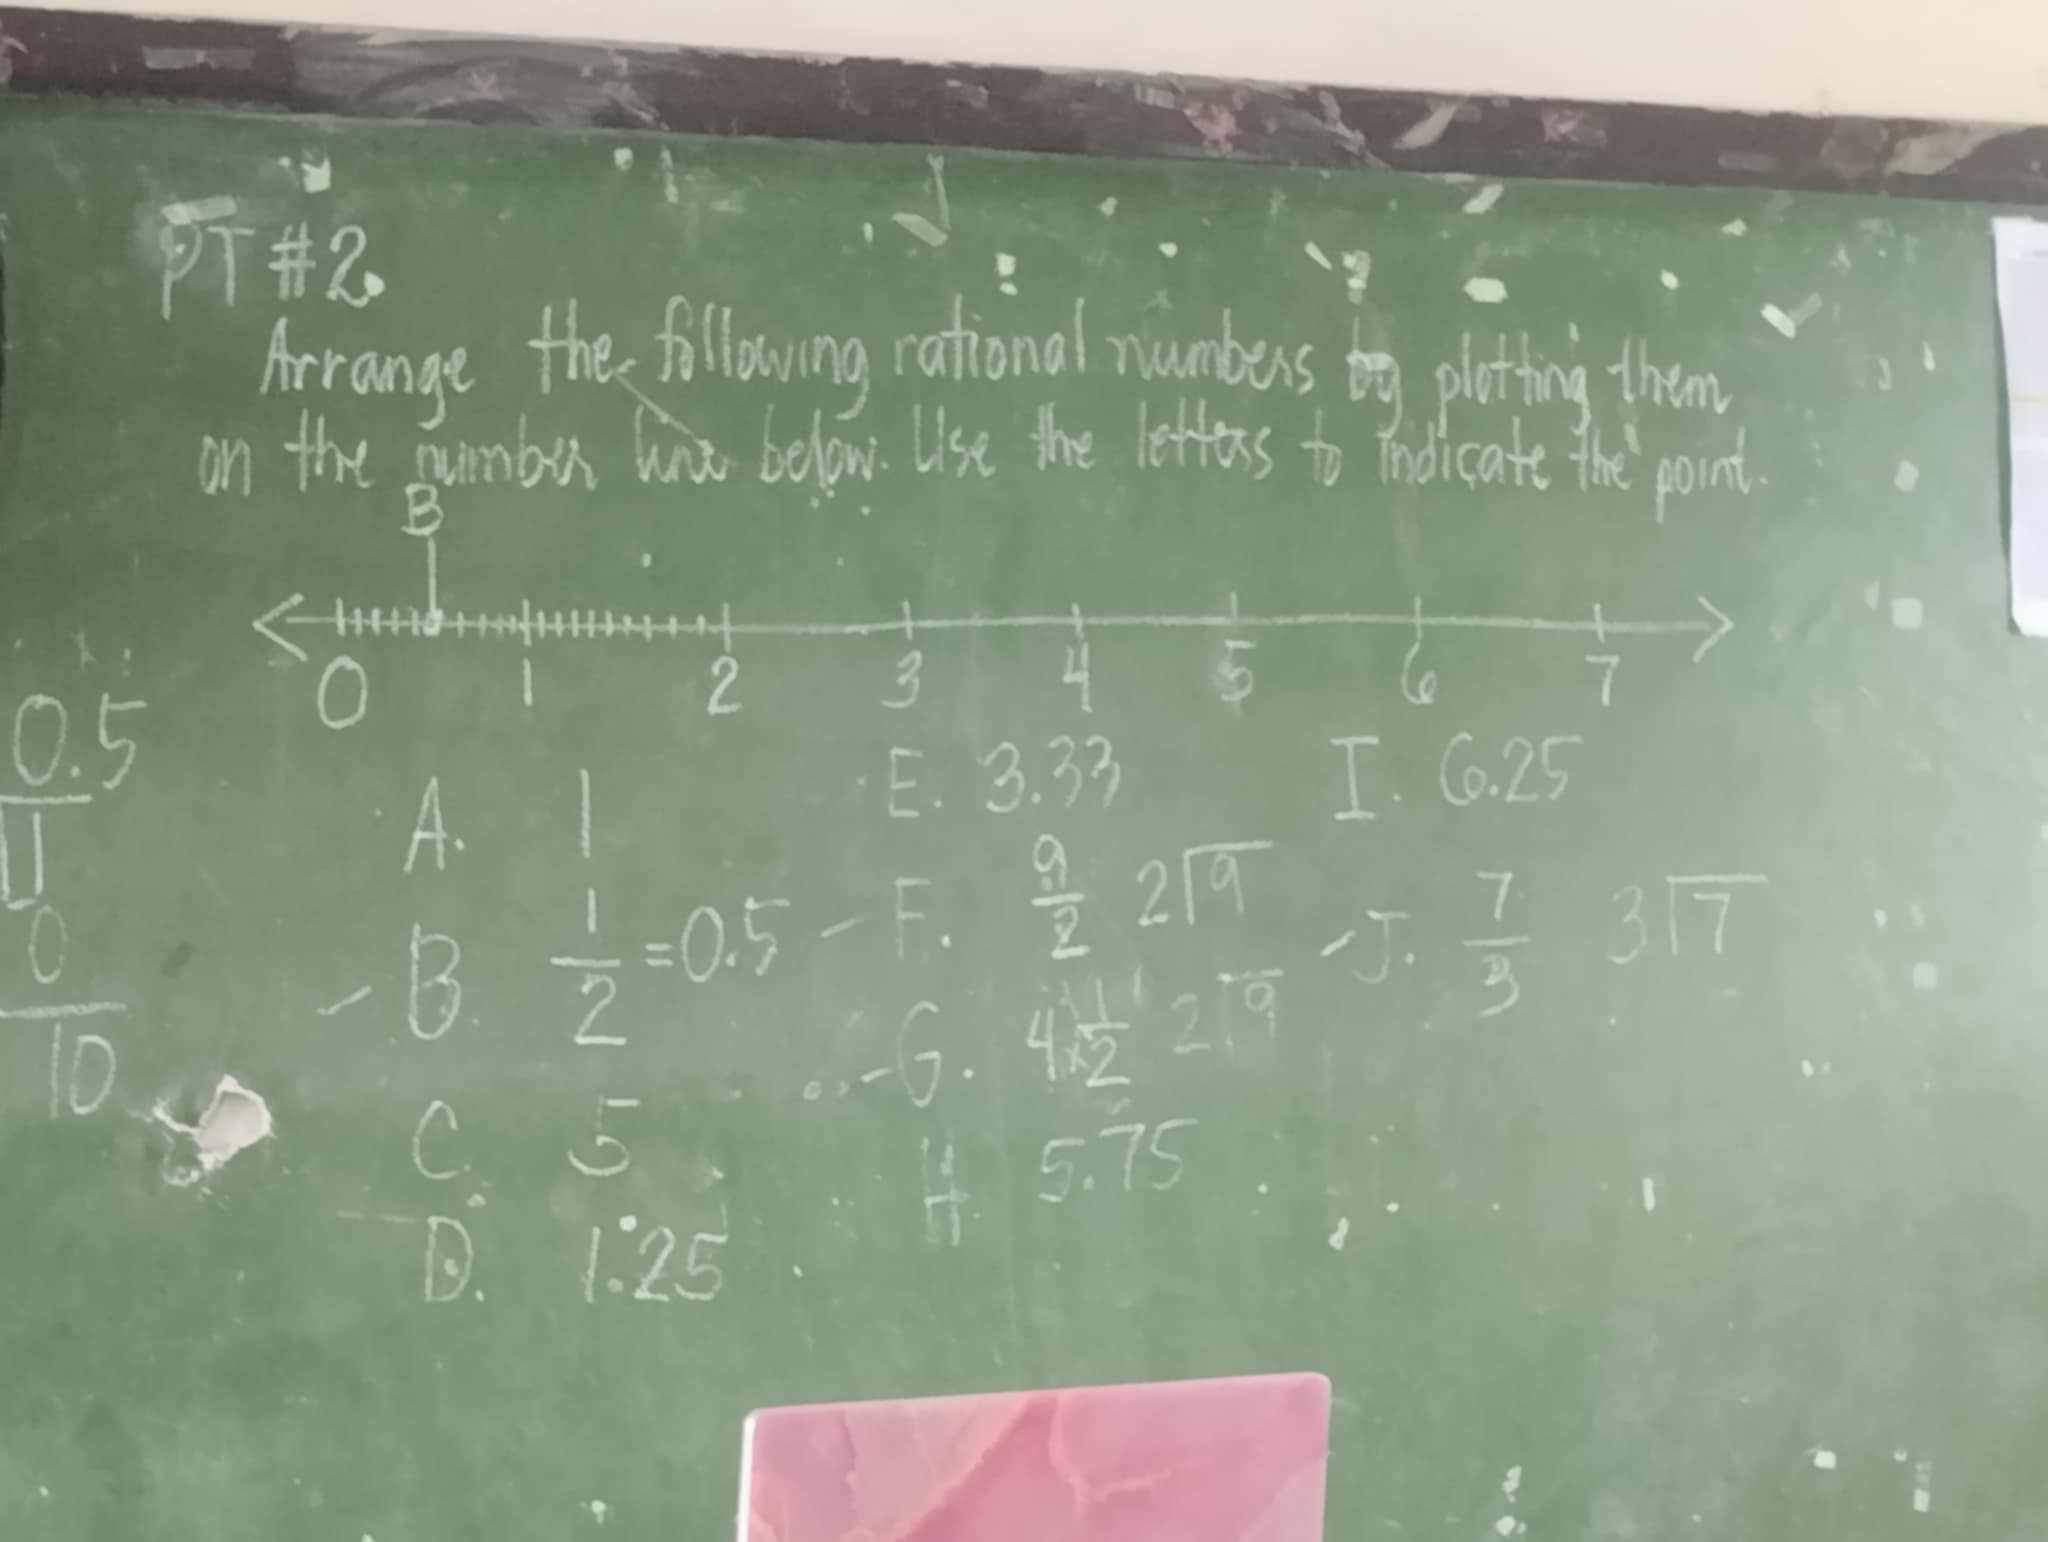 PT #2
Arrange the following rational numbers by plotting them
on the number line below. Use the letters to indicate the point.
B
0 1 2 3 4 5 6 7
0.5
0
10
A. 1
B. 1/2 = 0.5
C. 5
D. 1.25
E. 3.33
F. 9/2 2√9
G. 4 1/2 2√9
H. 5.75
I. 6.25
J. 7/3 3√7